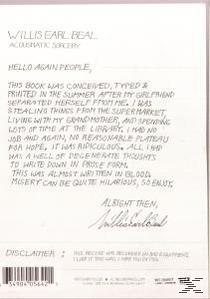 WILLIS EARL BEAL
ACOUSMATIC SORCERY
HELLO AGAIN PEOPLE,
THIS BOOK WAS CONCEIVED, TYPED &
PRINTED IN THE SUMMER AFTER MY GIRLFRIEND
SEPARATED HERSELF FROM ME. I WAS
STEALING THINGS FROM THE SUPERMARKET,
LIVING WITH MY GRANDMOTHER, AND SPENDING
LOTS OF TIME AT THE LIBRARY. I HAD NO
JOB AND AGAIN, NO REASONABLE PLATEAU
FOR HOPE. IT WAS RIDICULOUS. ALL I HAD
WAS A WELL OF DEGENERATE THOUGHTS
TO WRITE DOWN IN PROSE FORM.
THIS WAS ALMOST WRITTEN IN BLOOD.
MISERY CAN BE QUITE HILARIOUS, SO ENJOY.
ALRIGHT THEN,
Willis Earl Beal
DISCLAIMER :
THIS RECORD WAS RECORDED ON BAD EQUIPMENT.